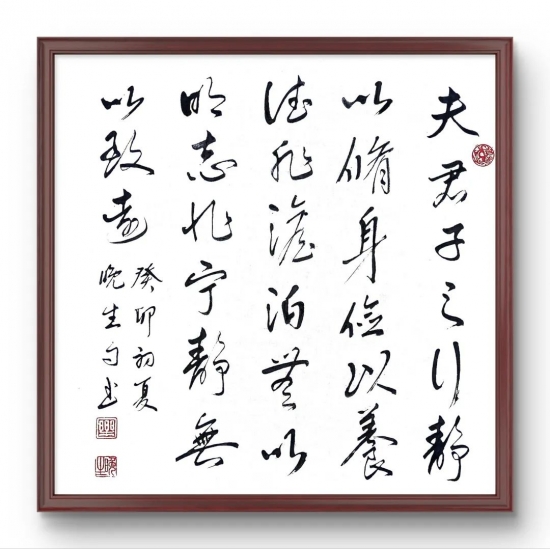 夫君子之行静
以脩身俭以養
德非澹泊無以
明志非宁静無
以致遠
癸卯初夏
晚生